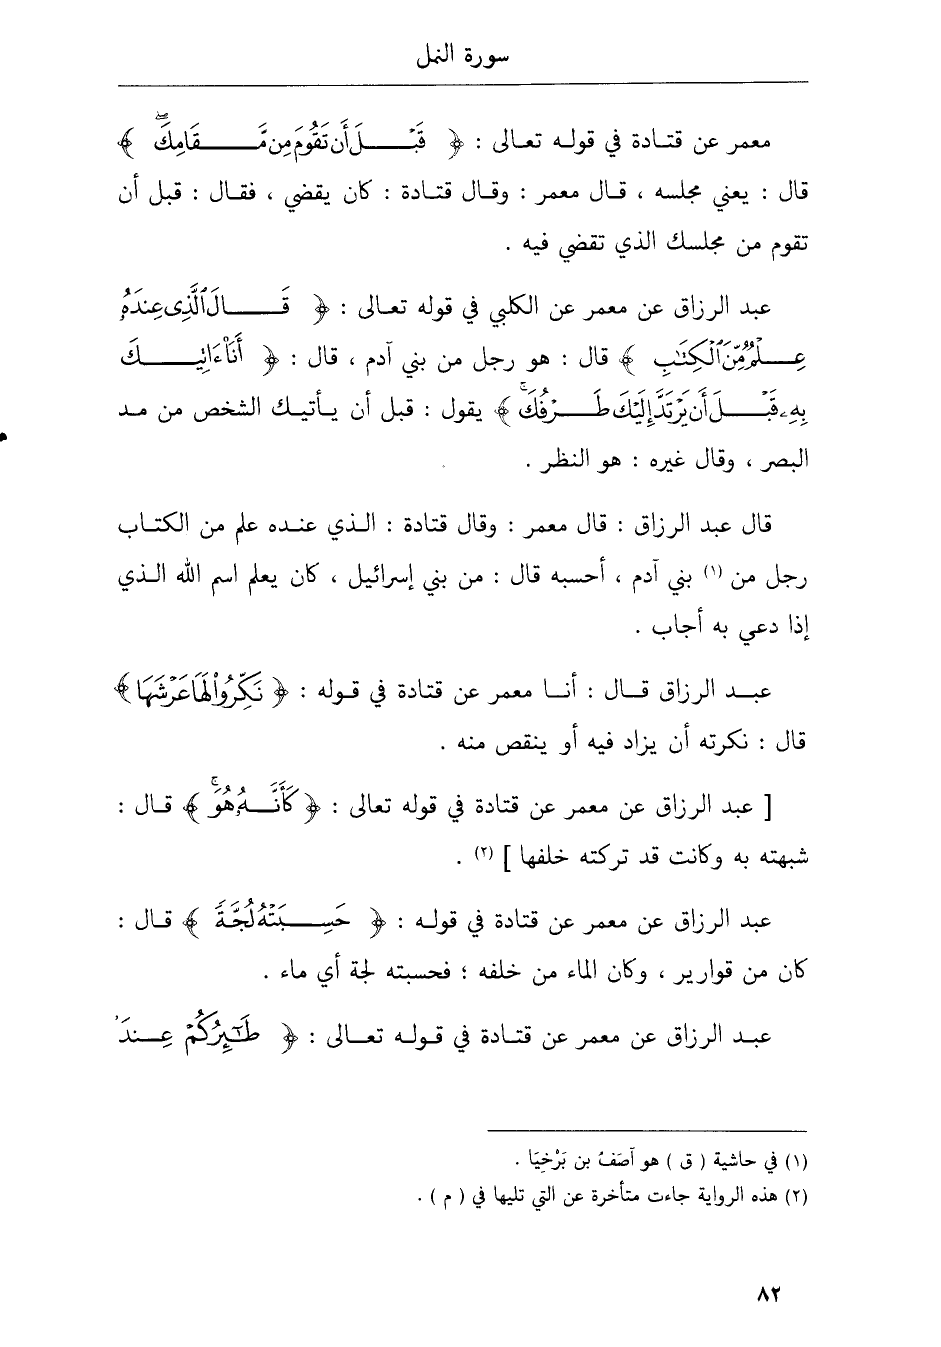 سورة النمل
معمر عن قتادة في قوله تعالى : ﴿ قَبْلَ أَن تَقُومَ مِن مَّقَامِكَ ۖ ﴾
قال : يعني مجلسه ، قال معمر : وقال قتادة : كان يقضي ، فقال : قبل أن
تقوم من مجلسك الذي تقضي فيه .
عبد الرزاق عن معمر عن الكلبي في قوله تعالى : ﴿ قَالَ ٱلَّذِى عِندَهُۥ
عِلْمٌ مِّنَ ٱلْكِتَٰبِ ﴾ قال : هو رجل من بني آدم ، قال : ﴿ أَنَا۠ ءَاتِيكَ
بِهِۦ قَبْلَ أَن يَرْتَدَّ إِلَيْكَ طَرْفُكَ ۚ ﴾ يقول : قبل أن يأتيك الشخص من مد
البصر ، وقال غيره : هو النظر .
قال عبد الرزاق : قال معمر : وقال قتادة : الذي عنده علم من الكتاب
رجل من (١) بني آدم ، أحسبه قال : من بني إسرائيل ، كان يعلم اسم الله الذي
إذا دعي به أجاب .
عبد الرزاق قال : أنا معمر عن قتادة في قوله : ﴿ نَكِّرُوا۟ لَهَا عَرْشَهَا ﴾
قال : نكرته أن يزاد فيه أو ينقص منه .
[ عبد الرزاق عن معمر عن قتادة في قوله تعالى : ﴿ كَأَنَّهُۥ هُوَ ۚ ﴾ قال :
شبهته به وكانت قد تركته خلفها ] (٢) .
عبد الرزاق عن معمر عن قتادة في قوله : ﴿ حَسِبَتْهُ لُجَّةً ﴾ قال :
كان من قوارير ، وكان الماء من خلفه ؛ فحسبته لجة أي ماء .
عبد الرزاق عن معمر عن قتادة في قوله تعالى : ﴿ طَٰٓئِرُكُمْ عِندَ
(١) في حاشية ( ق ) هو آصَفُ بن بَرْخِيَا .
(٢) هذه الرواية جاءت متأخرة عن التي تليها في ( م ) .
٨٢